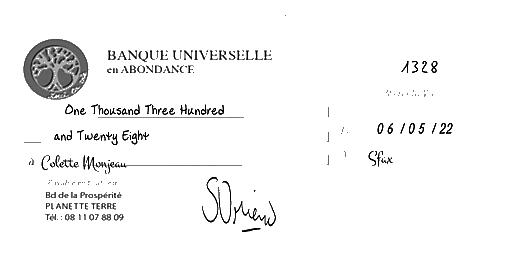 BANQUE UNIVERSELLE
en ABONDANCE
1328
One Thousand Three Hundred
and Twenty Eight
06/05/22
à Colette Monjeau
Sfax
Bd de la Prospérité
PLANETTE TERRE
Tél. : 08 11 07 88 09